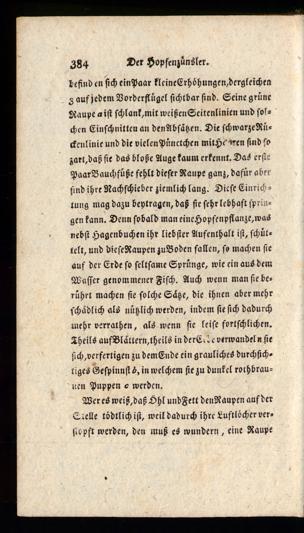 384 Der Hopfenzünsler.
befinden sich ein Paar kleine Erhöhungen, dergleichen
3 auf jedem Vorderflügel sichtbar sind. Seine grüne
Raupe a ist schlank, mit weißen Seitenlinien und sol-
chen Einschnitten an den Absätzen. Die schwarze Rü-
ckenlinie und die vielen Pünctchen mit Haaren sind so
zart, daß sie das bloße Auge kaum erkennt. Das erste
Paar Bauchfüße fehlt dieser Raupe ganz, dafür aber
sind ihre Nachschieber ziemlich lang. Diese Einrich-
tung mag dazu beytragen, daß sie sehr lebhaft sprin-
gen kann. Denn sobald man eine Hopfenpflanze, was
nebst Hagenbuchen ihr liebster Aufenthalt ist, schüt-
telt, und diese Raupen zu Boden fallen, so machen sie
auf der Erde so seltsame Sprünge, wie ein aus dem
Wasser genommener Fisch. Auch wenn man sie be-
rührt machen sie solche Sätze, die ihnen aber mehr
schädlich als nützlich werden, indem sie sich dadurch
mehr verrathen, als wenn sie leise fortschlichen.
Theils auf Blättern, theils in der Erde verwandeln sie
sich, verfertigen zu dem Ende ein grauliches durchsich-
tiges Gespinnst b, in welchem sie zu dunkel rothbrau-
nen Puppen c werden.
Wer es weiß, daß Öhl und Fett den Raupen auf der
Stelle tödtlich ist, weil dadurch ihre Luftlöcher ver-
stopft werden, den muß es wundern, eine Raupe